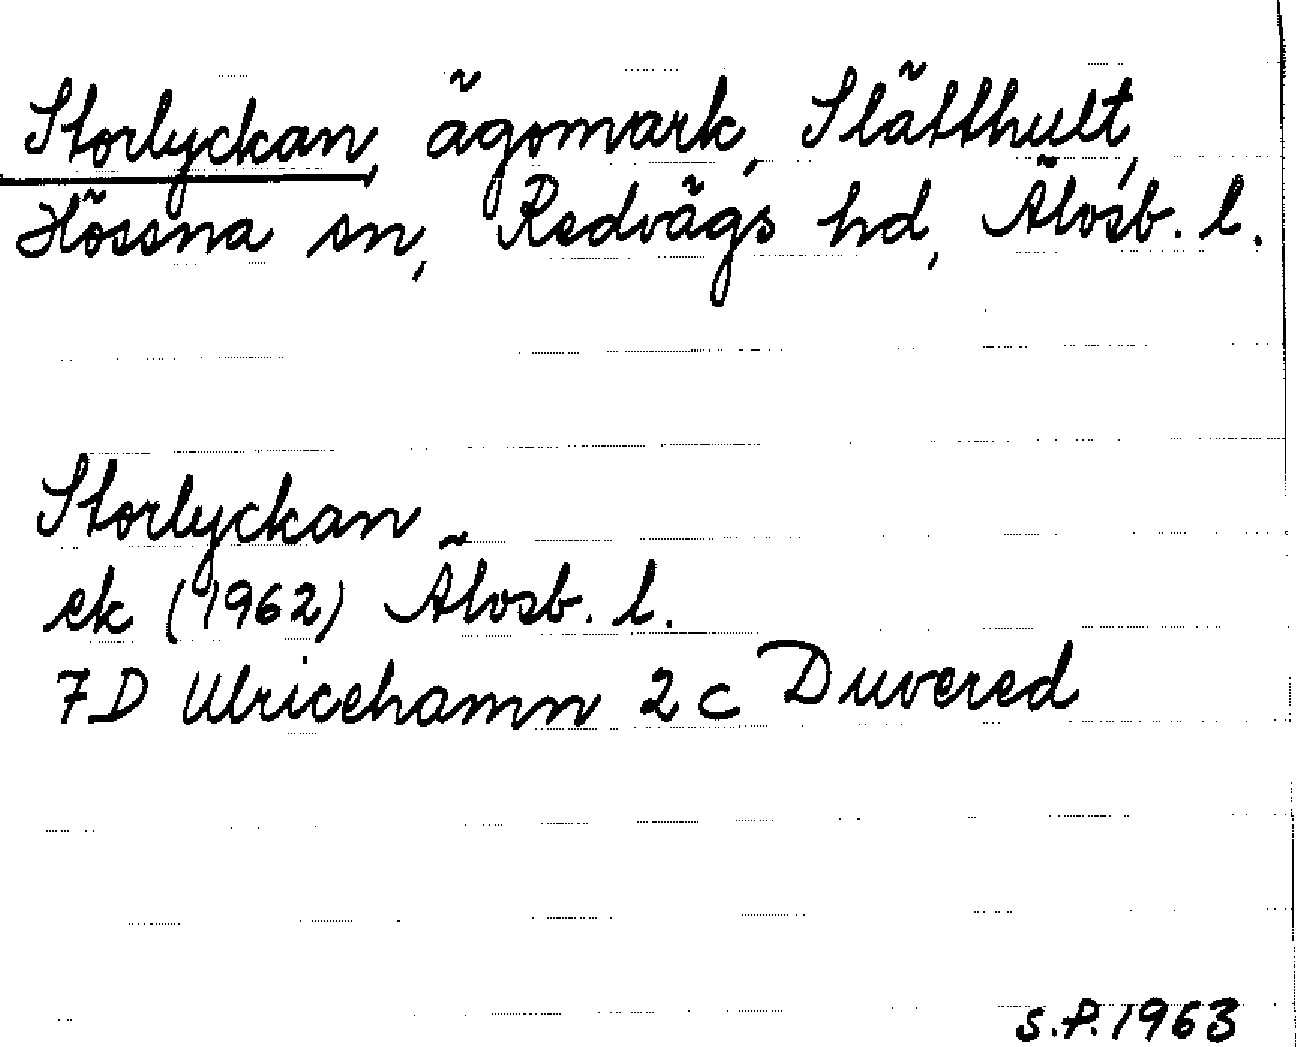 Storlyckan, ägomark, Slätthult,
Hössna sn, Redvägs hd, Älvsb. l.
Storlyckan
ek (1962) Älvsb. l.
7D Ulricehamn 2 c Duvered
S.P. 1963